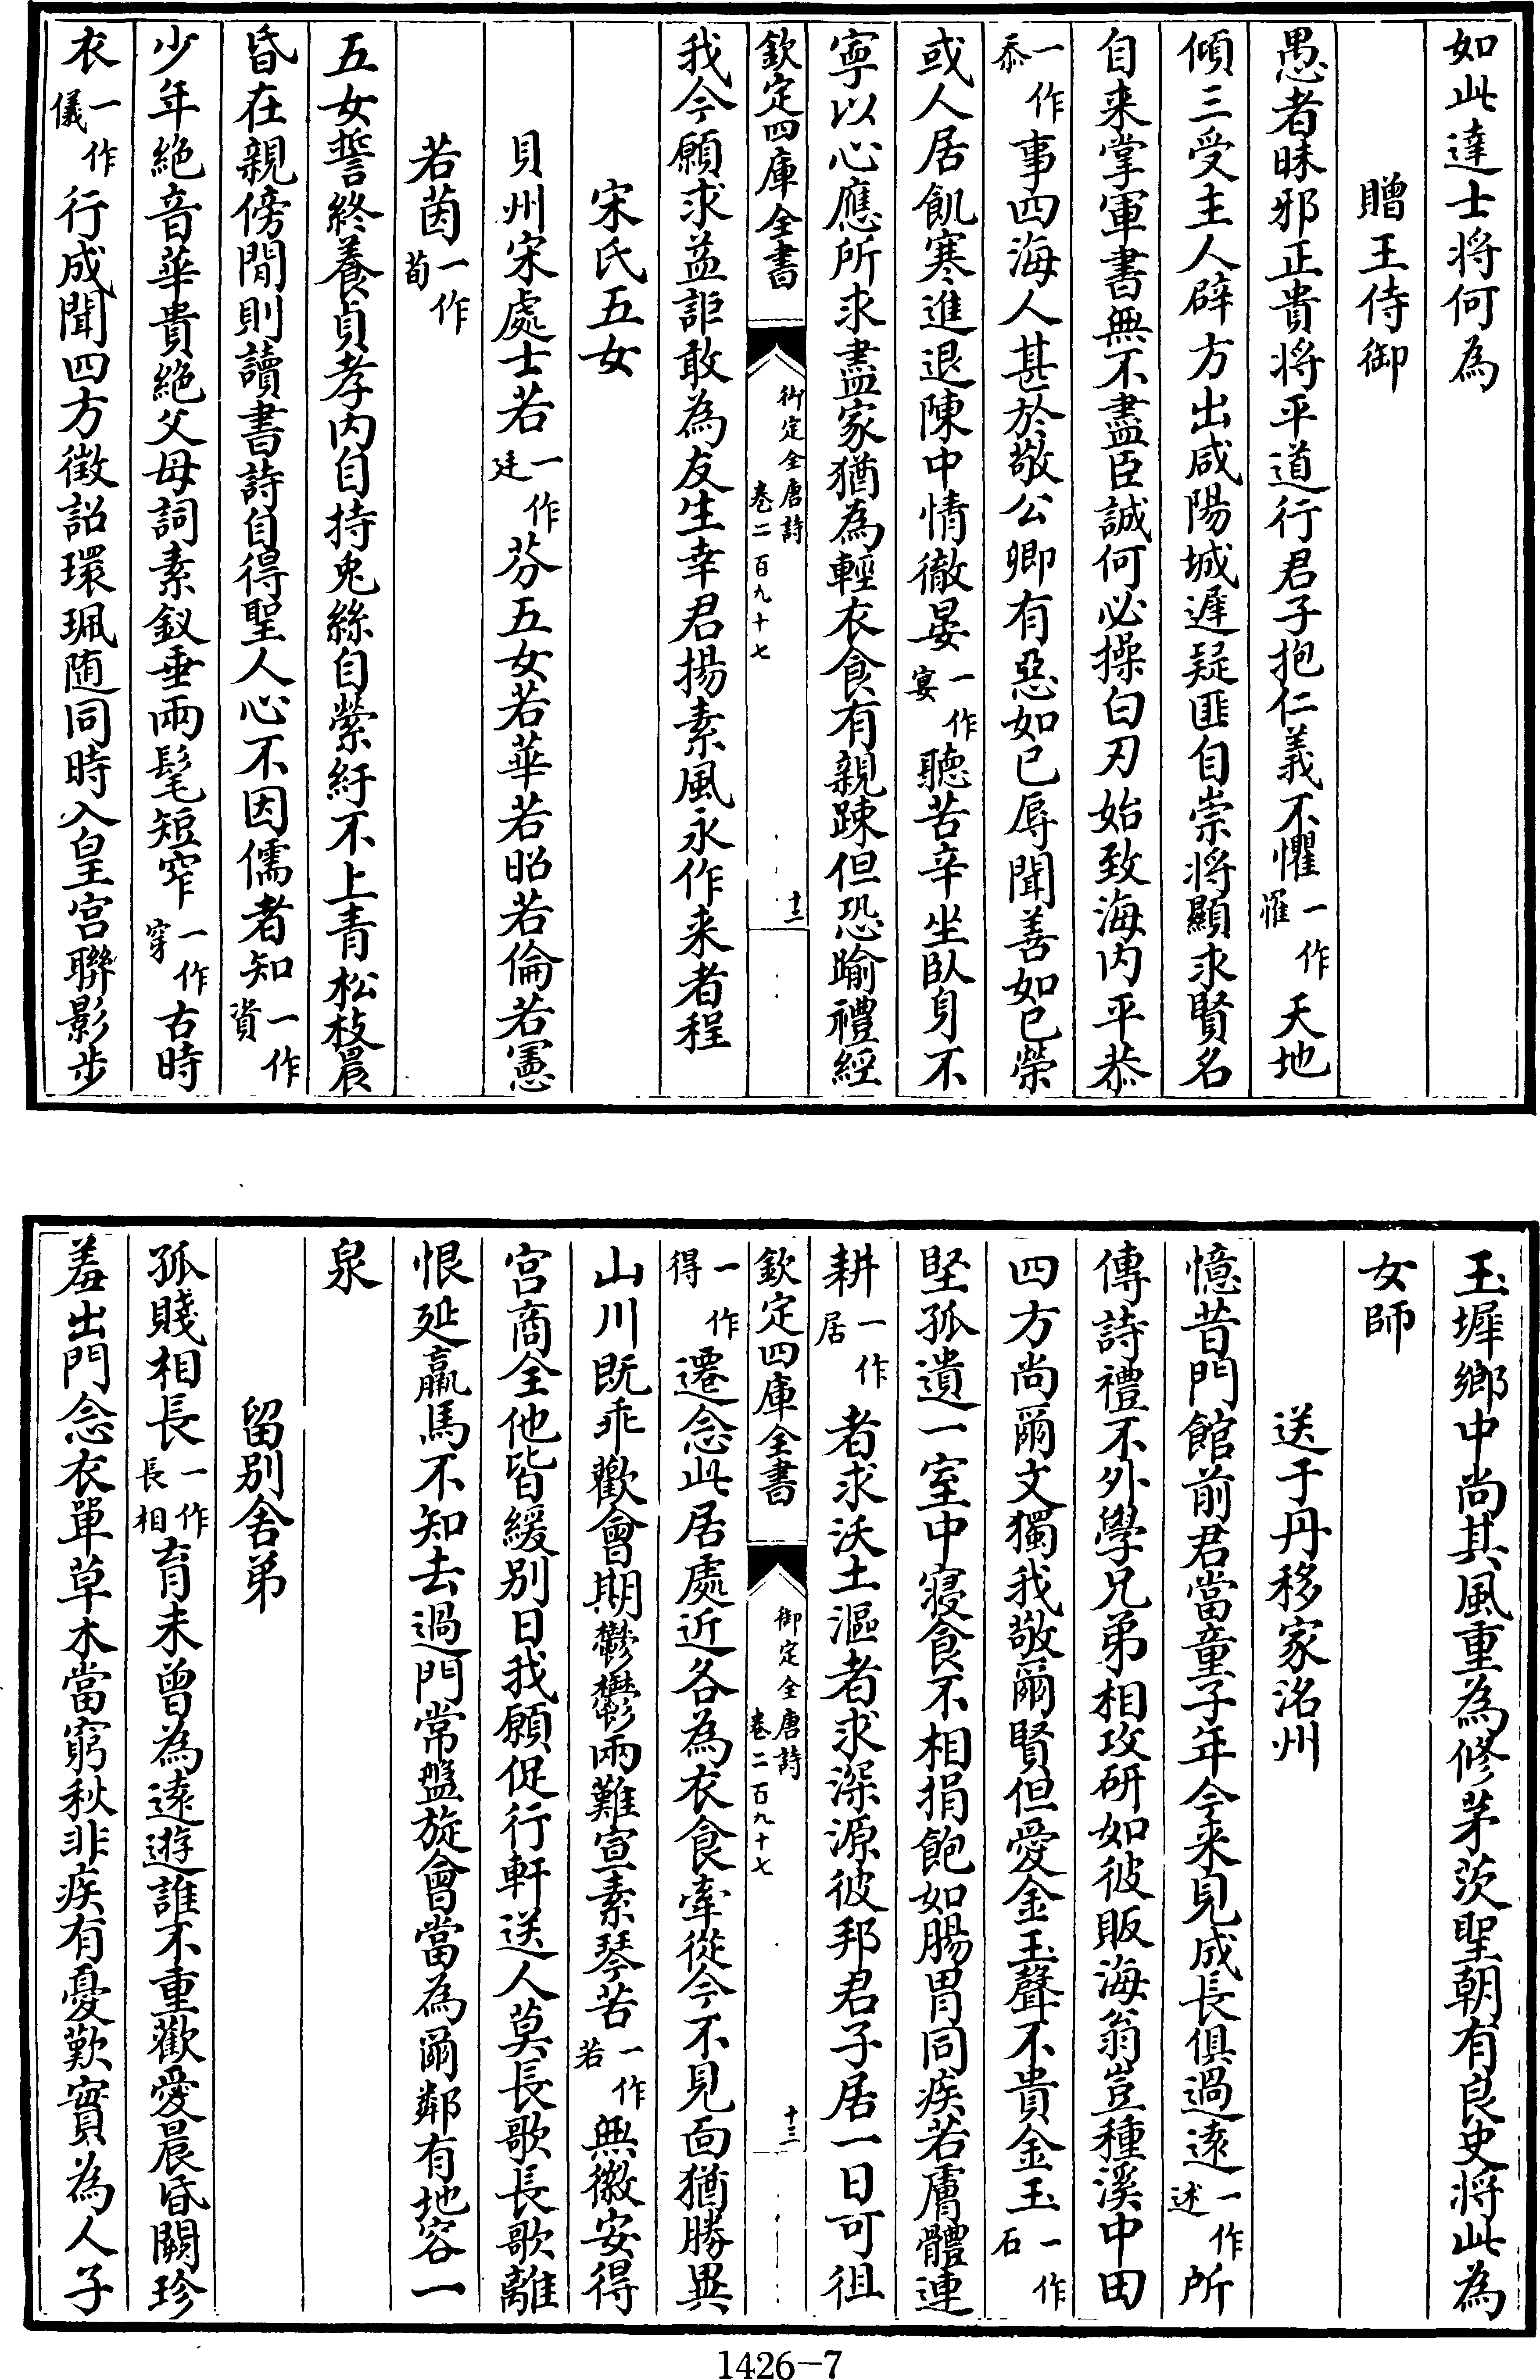 如此達士将何為
贈王侍御
愚者昧邪正貴将平道行君子抱仁義不懼一作罹天地
傾三受主人辟方出咸陽城遲疑匪自崇将顯求賢名
自来掌軍書無不盡臣誠何必操白刃始致海内平恭
一作忝事四海人甚於敬公卿有惡如己辱聞善如己榮
或人居飢寒進退陳中情徹晏一作宴聽苦辛坐臥身不
寧以心應所求盡家猶為輕衣食有親踈但恐踰禮經
欽定四庫全書
御定全唐詩
卷二百九十七
十二
我今願求益詎敢為友生幸君揚素風永作来者程
宋氏五女
貝州宋處士若一作廷芬五女若華若昭若倫若憲
若茵一作荀
五女誓終養貞孝内自持兎絲自縈紆不上青松枝晨
昏在親傍閒則讀書詩自得聖人心不因儒者知一作資
少年絶音華貴絶父母詞素釵垂兩髦短窄一作穿古時
衣一作儀行成聞四方徴詔環珮随同時入皇宫聯影步
玉墀鄉中尚其風重為修茅茨聖朝有良史将此為
女師
送于丹移家洺州
憶昔門館前君當童子年今来見成長俱過遠一作述所
傳詩禮不外學兄弟相攻研如彼販海翁豈種溪中田
四方尚爾文獨我敬爾賢但愛金玉聲不貴金玉一作石
堅孤遺一室中寢食不相捐飽如腸胃同疾若膚體連
耕一作居者求沃土漚者求深源彼邦君子居一日可徂
欽定四庫全書
御定全唐詩
卷二百九十七
十三
一作得遷念此居處近各為衣食牽從今不見面猶勝異
山川既乖歡會期鬱鬱兩難宣素琴苦一作若無徽安得
宫商全他皆緩别日我願促行軒送人莫長歌長歌離
恨延羸馬不知去過門常盤旋會當為爾鄰有地容一
泉
留别舍弟
孤賤相長一作長相育未曾為遠遊誰不重歡愛晨昏闕珍
羞出門念衣單草木當窮秋非疾有憂歎實為人子
1426-7